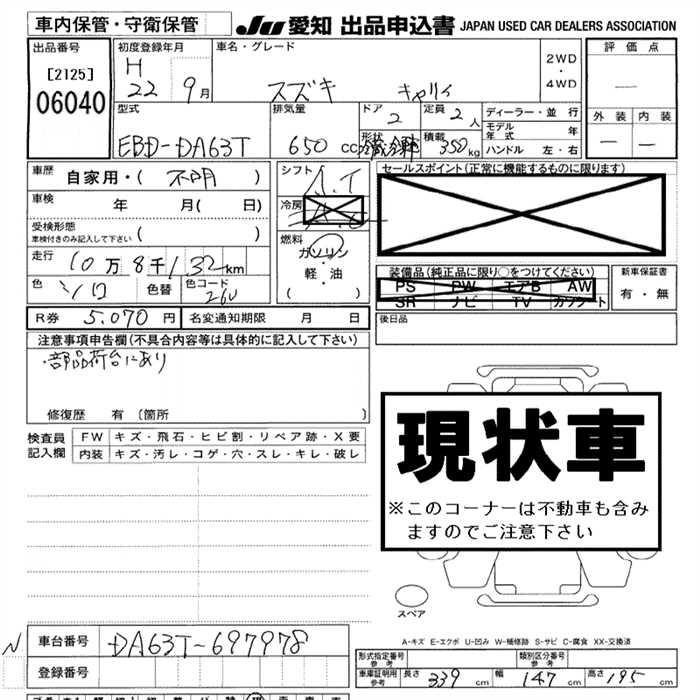 車内保管・守衛保管 JU 愛知 出品申込書 JAPAN USED CAR DEALERS ASSOCIATION
出品番号 初度登録年月 車名・グレード 2WD・4WD 評価点
[2125] H 22 9月 スズキ キャリィ —
06040 型式 排気量 ドア 2 定員 2 人 ディーラー・並行 外装 内装
EBD-DA63T 650 CC 形状 積載 350 kg モデル年式 年 — —
ハンドル 左・右
車歴 自家用・( 不明 ) シフト A.T セールスポイント(正常に機能するものに限ります)
車検 年 月( 日) 冷房
受検形態 ( )
車検付きのみ記入して下さい
燃料 ガソリン・軽・油 ( )
走行 10万8千132km 装備品(純正品に限り○をつけてください) 新車保証書
PS PW エアB AW 有・無
SR ナビ TV カワシート
色 シロ 色替 色コード 26U
R券 5.070 円 名変通知期限 月 日 後日品
注意事項申告欄(不具合内容等は具体的に記入して下さい)
・部品荷台にあり
修復歴 有 〔箇所 〕
検査員記入欄 FW キズ・飛石・ヒビ割・リペア跡・X要
内装 キズ・汚レ・コゲ・穴・スレ・キレ・破レ
現状車
※このコーナーは不動車も含み
ますのでご注意下さい
スペア
A-キズ E-エクボ U-凹み W-補修跡 S-サビ C-腐食 XX-交換済
N 車台番号 DA63T-697978
登録番号
形式指定番号 参考 類別区分番号 参考
車庫証明用 参考 長さ 339 cm 幅 147 cm 高さ 195 cm